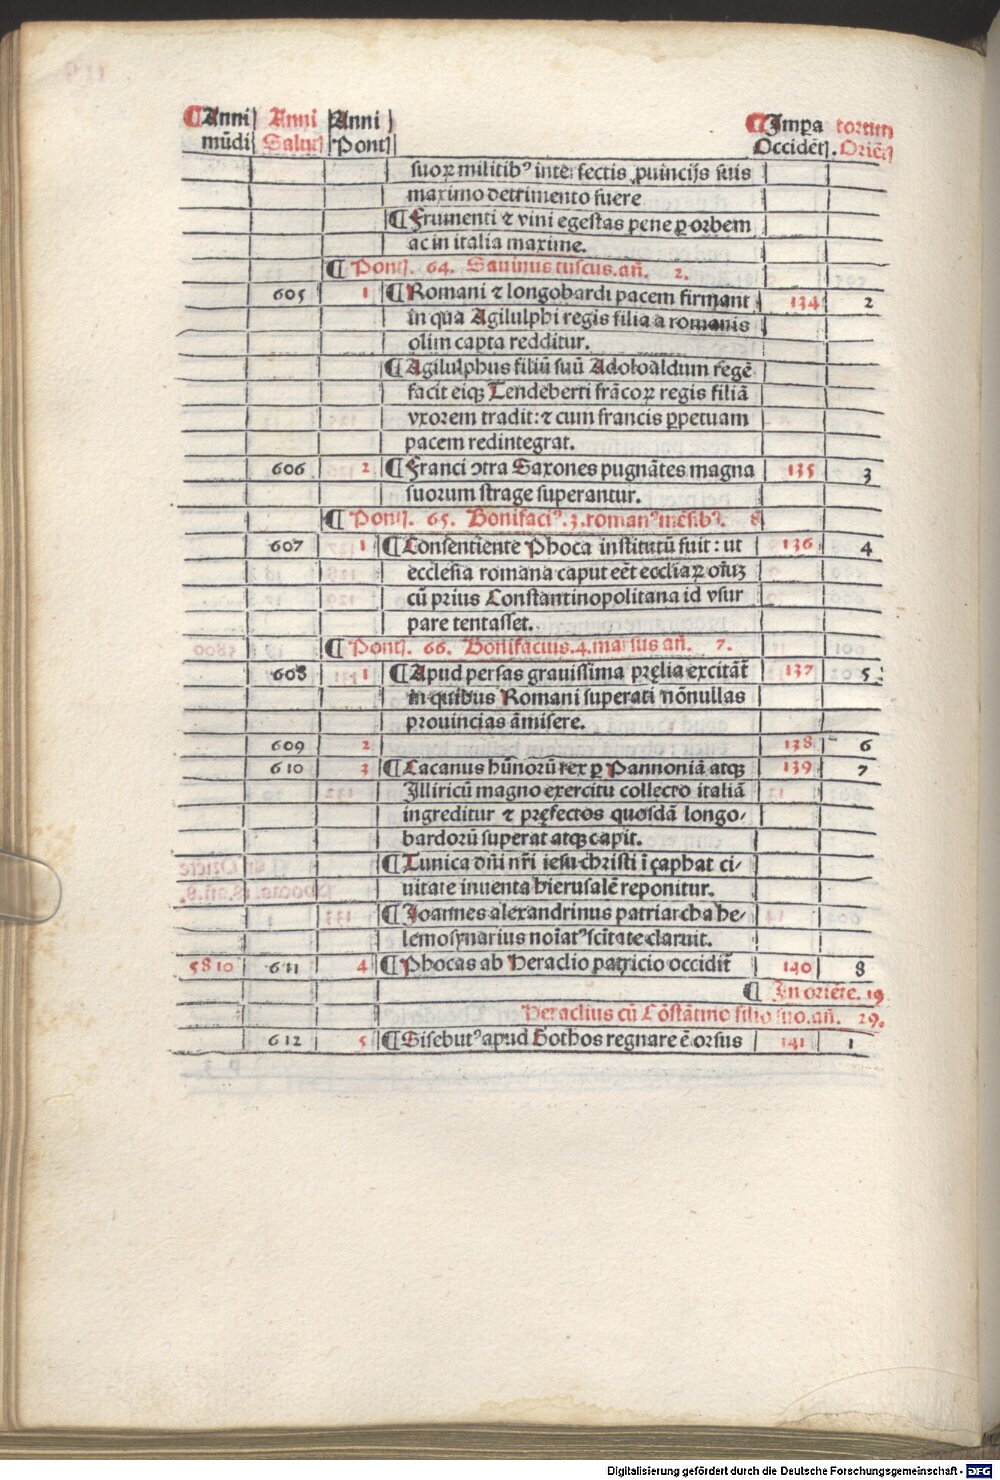 ¶Anni Anni Anni ¶Impa torum
mūdi Salut Pont Occidēt. Oriēt
suoꝝ militibꝰ inter fectis ꝓuincijs suis
maximo detrimento fuere
¶Frumenti ⁊ vini egestas pene ꝑ orbem
ac in italia maxime.
¶Pont. 64. Sauinus tuscus. añ. 2.
605 1 ¶Romani ⁊ longobardi pacem firmant 134 2
in qua Agilulphi regis filia a romanis
olim capta redditur.
¶Agilulphus filiū suū Adoloaldum regē
facit eiqꝫ Tendeberti frācoꝝ regis filiā
vxorem tradit: ⁊ cum francis ꝑpetuam
pacem redintegrat.
606 2 ¶Franci ↄtra Saxones pugnātes magna 135 3
suorum strage superantur.
¶Pont. 65. Bonifaciꝰ. 3. romanꝰ mēsibꝰ. 8
607 1 ¶Consentiente Phoca institutū fuit: ut 136 4
ecclesia romana caput eēt eccliaꝝ oīuꝫ
cū prius Constantinopolitana id vsur
pare tentasset.
¶Pont. 66. Bonifacius. 4. marsus añ. 7.
608 1 ¶Apud persas grauissima pręlia excitāt̄ 137 5
in quibus Romani superati nōnullas
prouincias āmisere.
609 2 138 6
610 3 ¶Cacanus hūnorū rex ꝑ Pannoniā atqꝫ 139 7
Illiricū magno exercitu collecto italiā
ingreditur ⁊ pręfectos quosdā longo-
bardorū superat atqꝫ capit.
¶Tunica dñi nr̄i iesu christi ī çaphat ci-
uitate inuenta hierusalē reponitur.
¶Joannes alexandrinus patriarcha he-
lemosynarius noīatꝰ scītate claruit.
5810 611 4 ¶Phocas ab Heraclio patricio occidit̄ 140 8
¶ In oriēte. 19
Heraclius cū Cōstātino filio suo. añ. 29.
612 5 ¶Sisebutꝰ apud Gothos regnare ē orsus 141 1
Digitalisierung gefördert durch die Deutsche Forschungsgemeinschaft - DFG